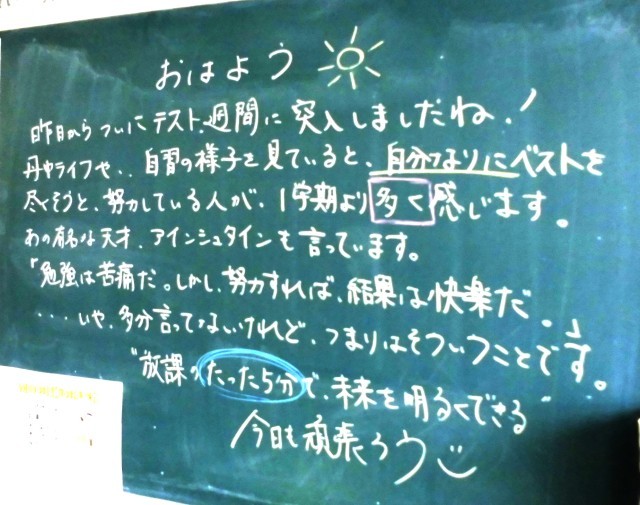 おはよう
昨日からついにテスト週間に突入しましたね!
丹やライフや、自習の様子を見ていると、自分なりにベストを
尽くそうと、努力している人が、1学期より多く感じます。
あの有名な天才、アインシュタインも言っています。
「勉強は苦痛だ。しかし、努力すれば、結果は快楽だ。」
...いや、多分言ってないけれど、つまりはそういうことです。
"放課のたった5分で、未来を明るくできる"
今日も頑張ろう